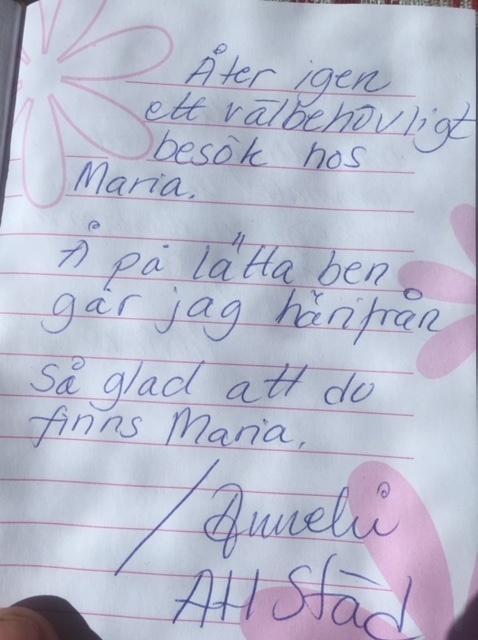 Åter igen
ett välbehövligt
besök hos
Maria.
Å på lätta ben
går jag härifrån
Så glad att do
finns Maria.
/Annelii
AH Städ